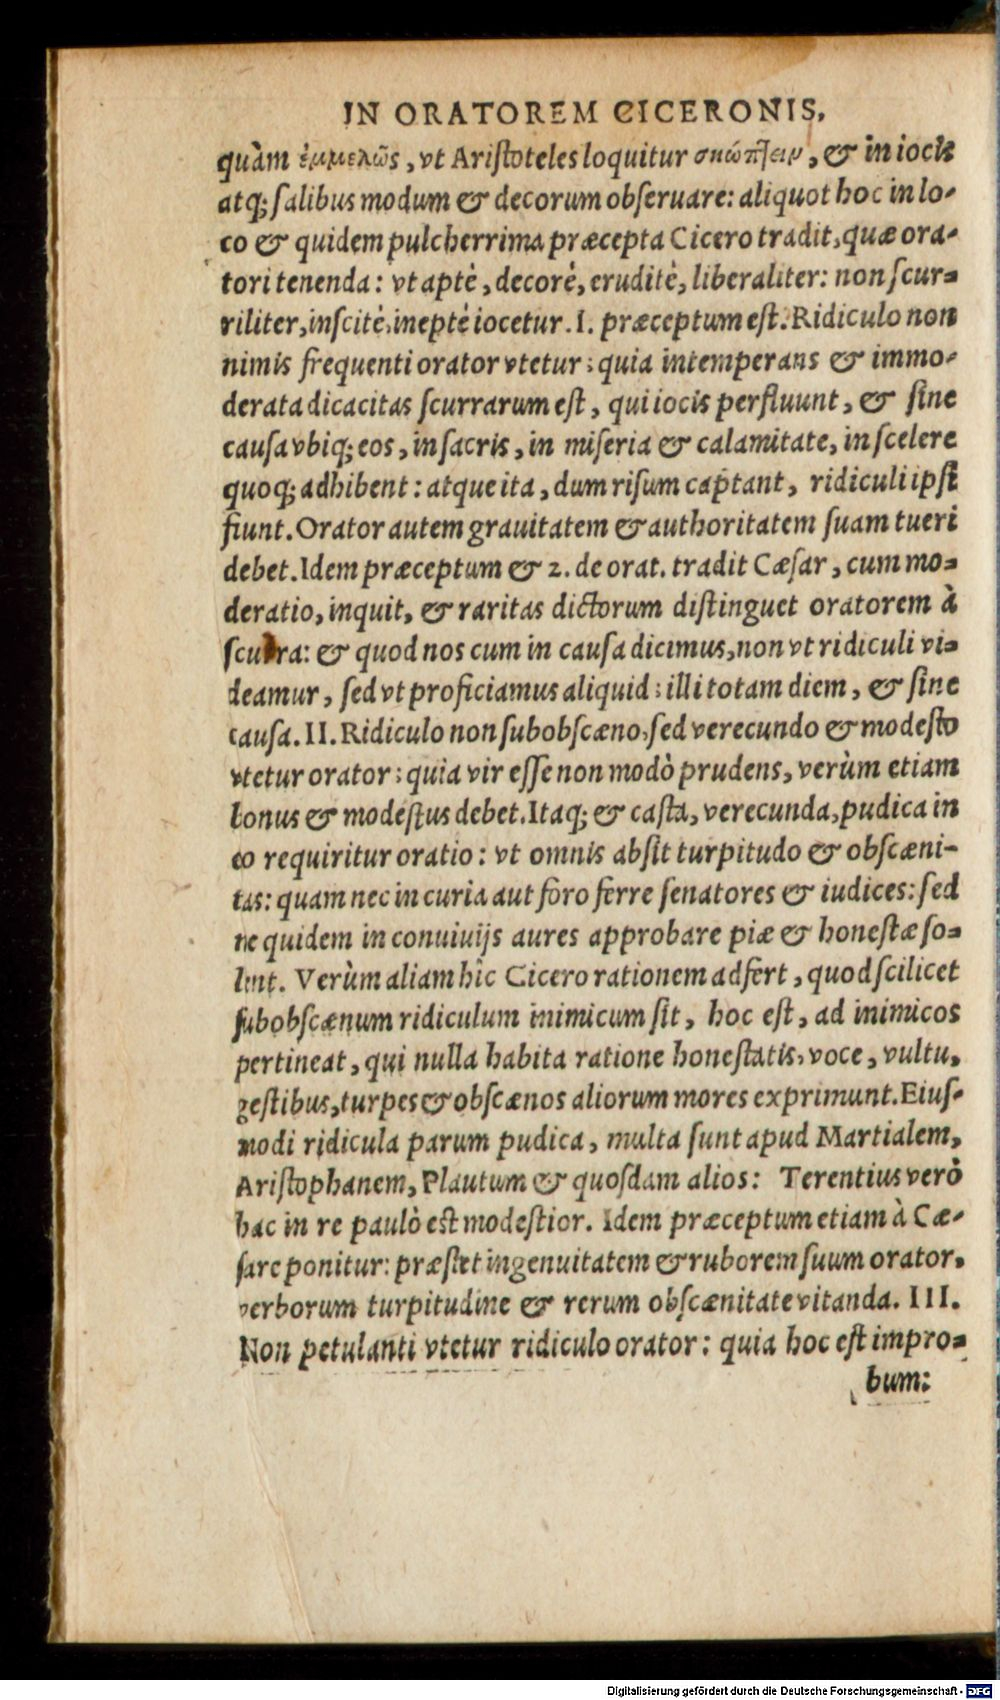 IN ORATOREM CICERONIS.
quàm ἐμμελῶς, vt Aristoteles loquitur σκώπτειν, & in iocis
atq; salibus modum & decorum obseruare: aliquot hoc in lo-
co & quidem pulcherrima præcepta Cicero tradit, quæ ora-
tori tenenda: vt aptè, decorè, eruditè, liberaliter: non scur-
riliter, inscitè, ineptè iocetur. I. præceptum est. Ridiculo non
nimis frequenti orator vtetur; quia intemperans & immo-
derata dicacitas scurrarum est, qui iocis perfluunt, & sine
causa vbiq; eos, in sacris, in miseria & calamitate, in scelere
quoq; adhibent: atque ita, dum risum captant, ridiculi ipsi
fiunt. Orator autem grauitatem & authoritatem suam tueri
debet. Idem præceptum & 2. de orat. tradit Cæsar, cum mo-
deratio, inquit, & raritas dictorum distinguet oratorem à
scurra: & quod nos cum in causa dicimus, non vt ridiculi vi-
deamur, sed vt proficiamus aliquid; illi totam diem, & sine
causa. II. Ridiculo non subobscæno, sed verecundo & modesto
vtetur orator; quia vir esse non modò prudens, verùm etiam
bonus & modestus debet. Itaq; & casta, verecunda, pudica in
eo requiritur oratio: vt omnis absit turpitudo & obscæni-
tas: quam nec in curia aut foro ferre senatores & iudices: sed
ne quidem in conuiuijs aures approbare piæ & honestæ so-
lent. Verùm aliam hîc Cicero rationem adfert, quod scilicet
subobscænum ridiculum inimicum sit, hoc est, ad inimicos
pertineat, qui nulla habita ratione honestatis, voce, vultu,
gestibus, turpes & obscænos aliorum mores exprimunt. Eius-
modi ridicula parum pudica, multa sunt apud Martialem,
Aristophanem, Plautum & quosdam alios: Terentius verò
hac in re paulò est modestior. Idem præceptum etiam à Cæ-
sare ponitur: præstet ingenuitatem & ruborem suum orator,
verborum turpitudine & rerum obscænitate vitanda. III.
Non petulanti vtetur ridiculo orator: quia hoc est impro-
bum:
Digitalisierung gefördert durch die Deutsche Forschungsgemeinschaft - DFG